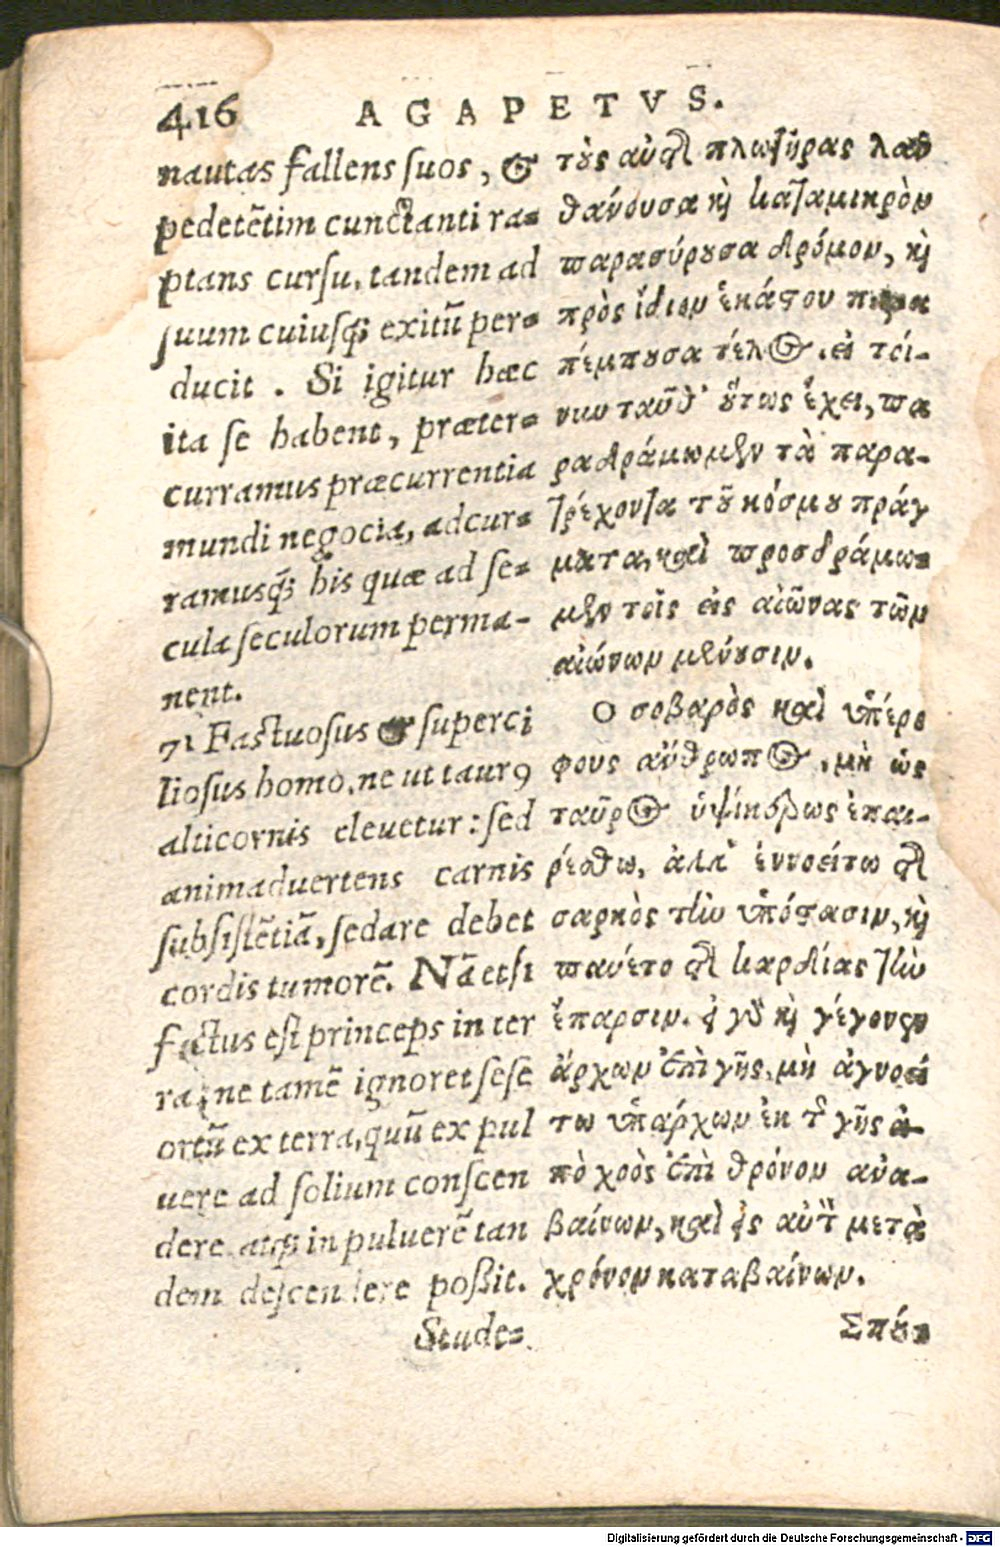 416 AGAPETVS.
nautas fallens suos, &
pedetẽtim cunctanti ra-
ptans cursu, tandem ad
suum cuiusq; exitũ per-
ducit . Si igitur hæc
ita se habent, præter-
curramus præcurrentia
mundi negocia, adcur-
ramusq; his quæ ad se-
cula seculorum perma-
nent.
71 Factuosus & superci
liosus homo, ne ut taurꝯ
alticornis eleuetur: sed
animaduertens carnis
subsistẽtiã, sedare debet
cordis tumorẽ. Nã etsi
factus est princeps in ter
ra, ne tamẽ ignoret sese
ortũ ex terra, quũ ex pul
uere ad solium conscen
dere atq; in puluerẽ tan
dem descendere poßit.
Stude-
τοὺς αὐτῆς πλωτῆρας λαν
θάνουσα καὶ καταμικρὸν
παρασύρουσα δρόμον, καὶ
πρὸς ἴδιον ἑκάστου
πέμπουσα τέλος. εἰ τοί-
νυν ταῦθ' οὕτως ἔχει, πα
ραδράμωμεν τὰ παρα-
τρέχοντα τοῦ κόσμου πράγ
ματα, καὶ προσδράμω-
μεν τοῖς εἰς αἰῶνας τῶν
αἰώνων μένουσιν.
Ο σοβαρὸς καὶ ὑπέρο
φρυς ἄνθρωπος, μὴ ὡς
ταῦρος ὑψίκερως ἐπαι-
ρέσθω, ἀλλ' ἐννοείτω τῆς
σαρκὸς τὴν ὑπόστασιν, καὶ
παύετο τῆς καρδίας τὴν
ἔπαρσιν. εἰ γὰρ καὶ γέγονεν
ἄρχων ἐπὶ γῆς, μὴ ἀγνοεί
τω ὑπάρχων ἐκ τῆς γῆς ἀ-
πὸ χοὸς ἐπὶ θρόνον ἀνα-
βαίνων, καὶ εἰς αὐτὸν μετὰ
χρόνον καταβαίνων.
Σπου-
Digitalisierung gefördert durch die Deutsche Forschungsgemeinschaft - DFG